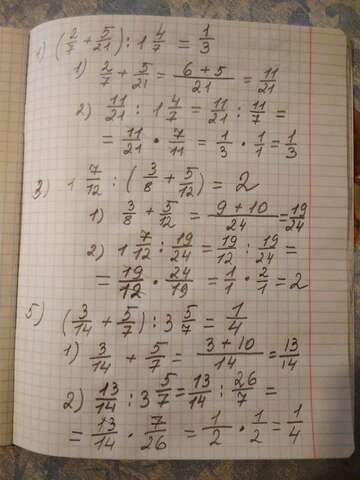 1) (2/7 + 5/21) : 1 4/7 = 1/3
1) 2/7 + 5/21 = (6 + 5)/21 = 11/21
2) 11/21 : 1 4/7 = 11/21 : 11/7 =
= 11/21 · 7/11 = 1/3 · 1/1 = 1/3
3) 1 7/12 : (3/8 + 5/12) = 2
1) 3/8 + 5/12 = (9 + 10)/24 = 19/24
2) 1 7/12 : 19/24 = 19/12 : 19/24 =
= 19/12 · 24/19 = 1/1 · 2/1 = 2
5) (3/14 + 5/7) : 3 5/7 = 1/4
1) 3/14 + 5/7 = (3 + 10)/14 = 13/14
2) 13/14 : 3 5/7 = 13/14 : 26/7 =
= 13/14 · 7/26 = 1/2 · 1/2 = 1/4